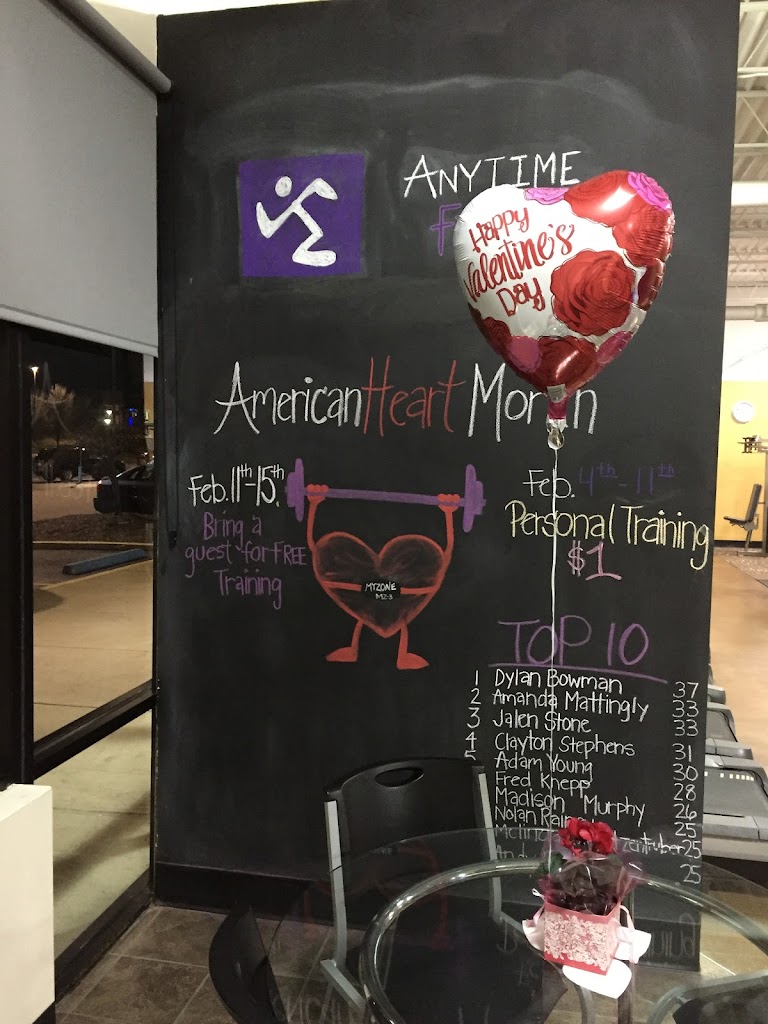 ANYTIME
F
Happy
Valentine's
Day
American Heart Mon
Feb. 11th-15th.
Bring a
guest for FREE
Training
MYZONE
MZ-3
Feb. 4th-11th
Personal Training
$1
TOP 10
1 Dylan Bowman 37
2 Amanda Mattingly 33
3 Jalen Stone 33
4 Clayton Stephens 31
5 Adam Young 30
Fred Knepp 28
Madison Murphy 26
Nolan 25
25
25